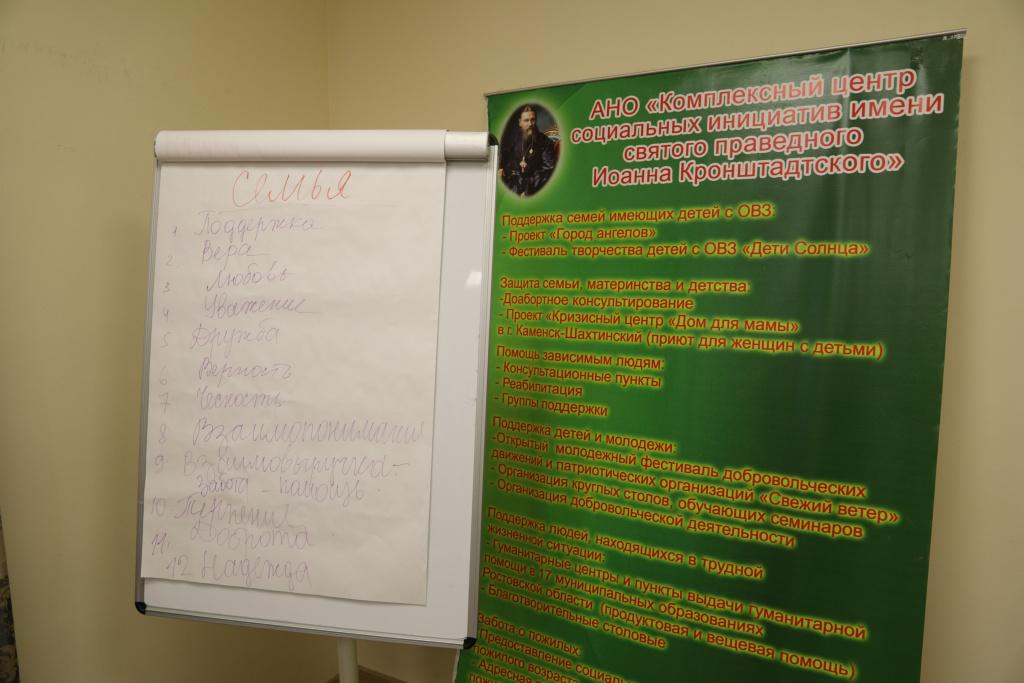 Семья
1 Поддержка
2 Вера
3 Любовь
4 Уважение
5 Дружба
6 Верность
7 Честность
8 Взаимопонимание
9. Взаимовыручка-
Забота - помощь.
10 Терпение
11. Доброта
12 Надежда
АНО «Комплексный центр
социальных инициатив имени
святого праведного
Иоанна Кронштадтского»
Поддержка семей имеющих детей с ОВЗ:
- Проект «Город ангелов»
- Фестиваль творчества детей с ОВЗ «Дети Солнца»
Защита семьи, материнства и детства:
-Доабортное консультирование
- Проект «Кризисный центр «Дом для мамы»
в г. Каменск-Шахтинский (приют для женщин с детьми)
Помощь зависимым людям:
- Консультационные пункты
- Реабилитация
- Группы поддержки
Поддержка детей и молодежи:
-Открытый молодежный фестиваль добровольческих
движений и патриотических организаций «Свежий ветер»
- Организация круглых столов, обучающих семинаров
- Организация добровольческой деятельности
Поддержка людей, находящихся в трудной
жизненной ситуации:
- Гуманитарные центры и пункты выдачи гуманитарной
помощи в 17 муниципальных образованиях
Ростовской области (продуктовая и вещевая помощь)
- Благотворительные столовые
Забота о пожилых:
- Предоставление
пожилого
- Адресная